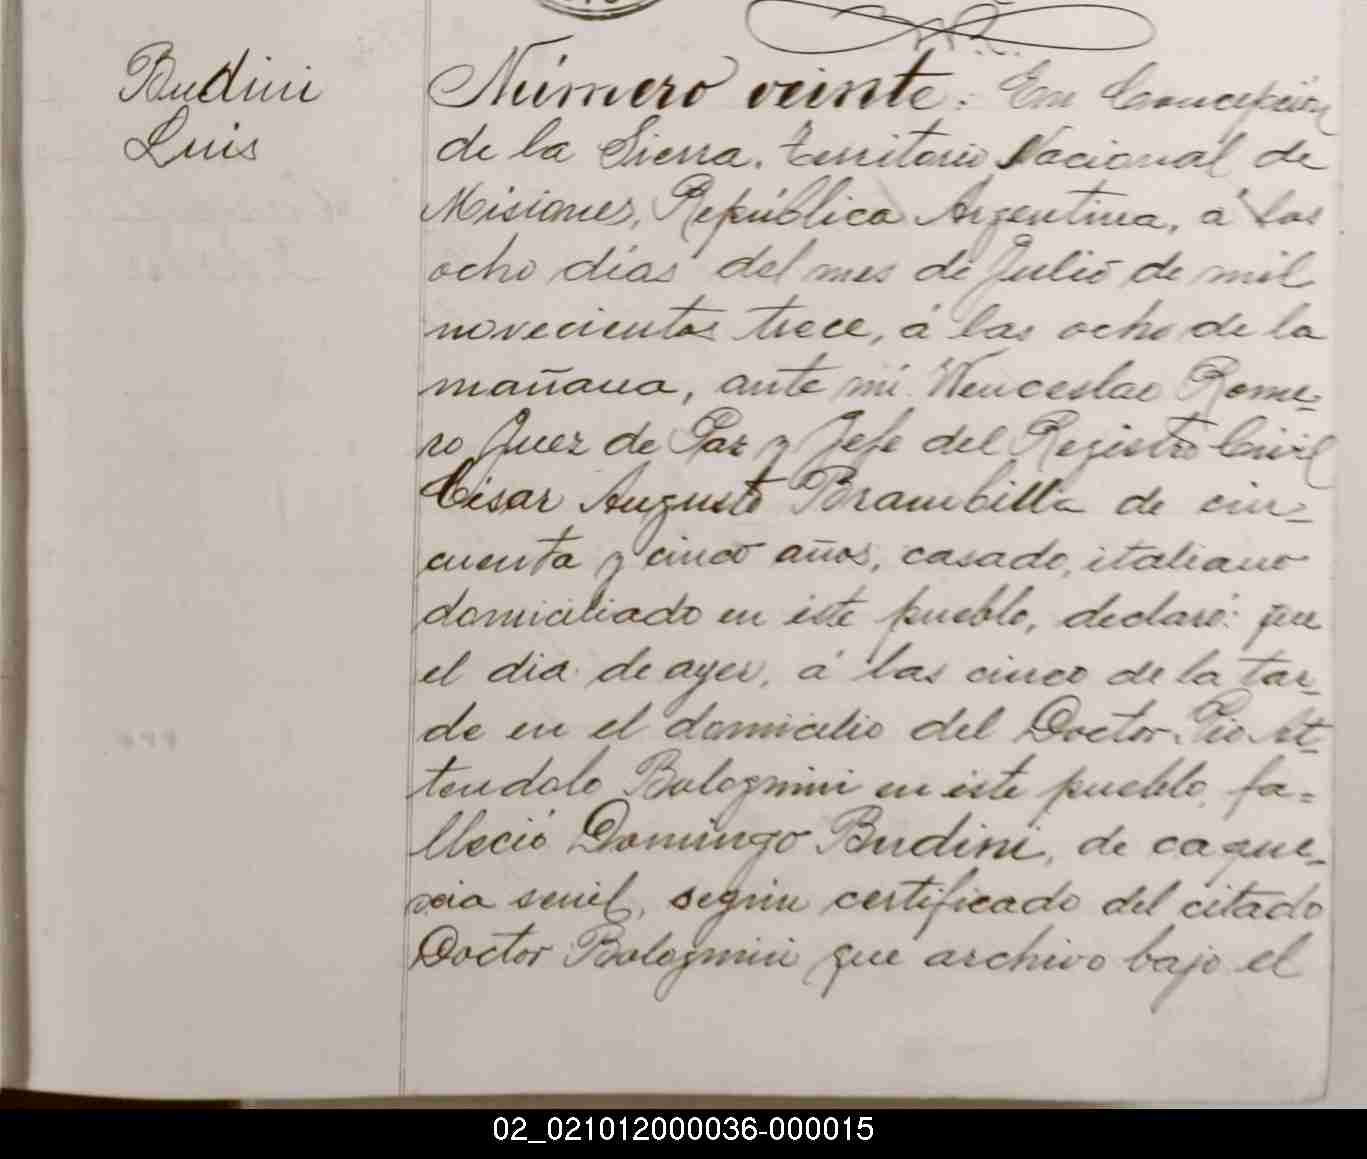 Budini
Luis
Número veinte. En Concepción
de la Sierra, Territorio Nacional de
Misiones, República Argentina, á las
ocho días del mes de Julio de mil
novecientos trece, á las ocho de la
mañana, ante mí Wenceslao Rome-
ro Juez de Paz y Jefe del Registro Civil
César Augusto Brambilla de cin-
cuenta y cinco años, casado, italiano
domiciliado en este pueblo, declaró: que
el dia de ayer, á las cinco de la tar-
de en el domicilio del Doctor Pio At-
tendolo Bolognini en este pueblo, fa-
lleció Domingo Budini, de caque-
xia senil, segun certificado del citado
Doctor Bolognini que archivo bajo el
02_021012000036-000015